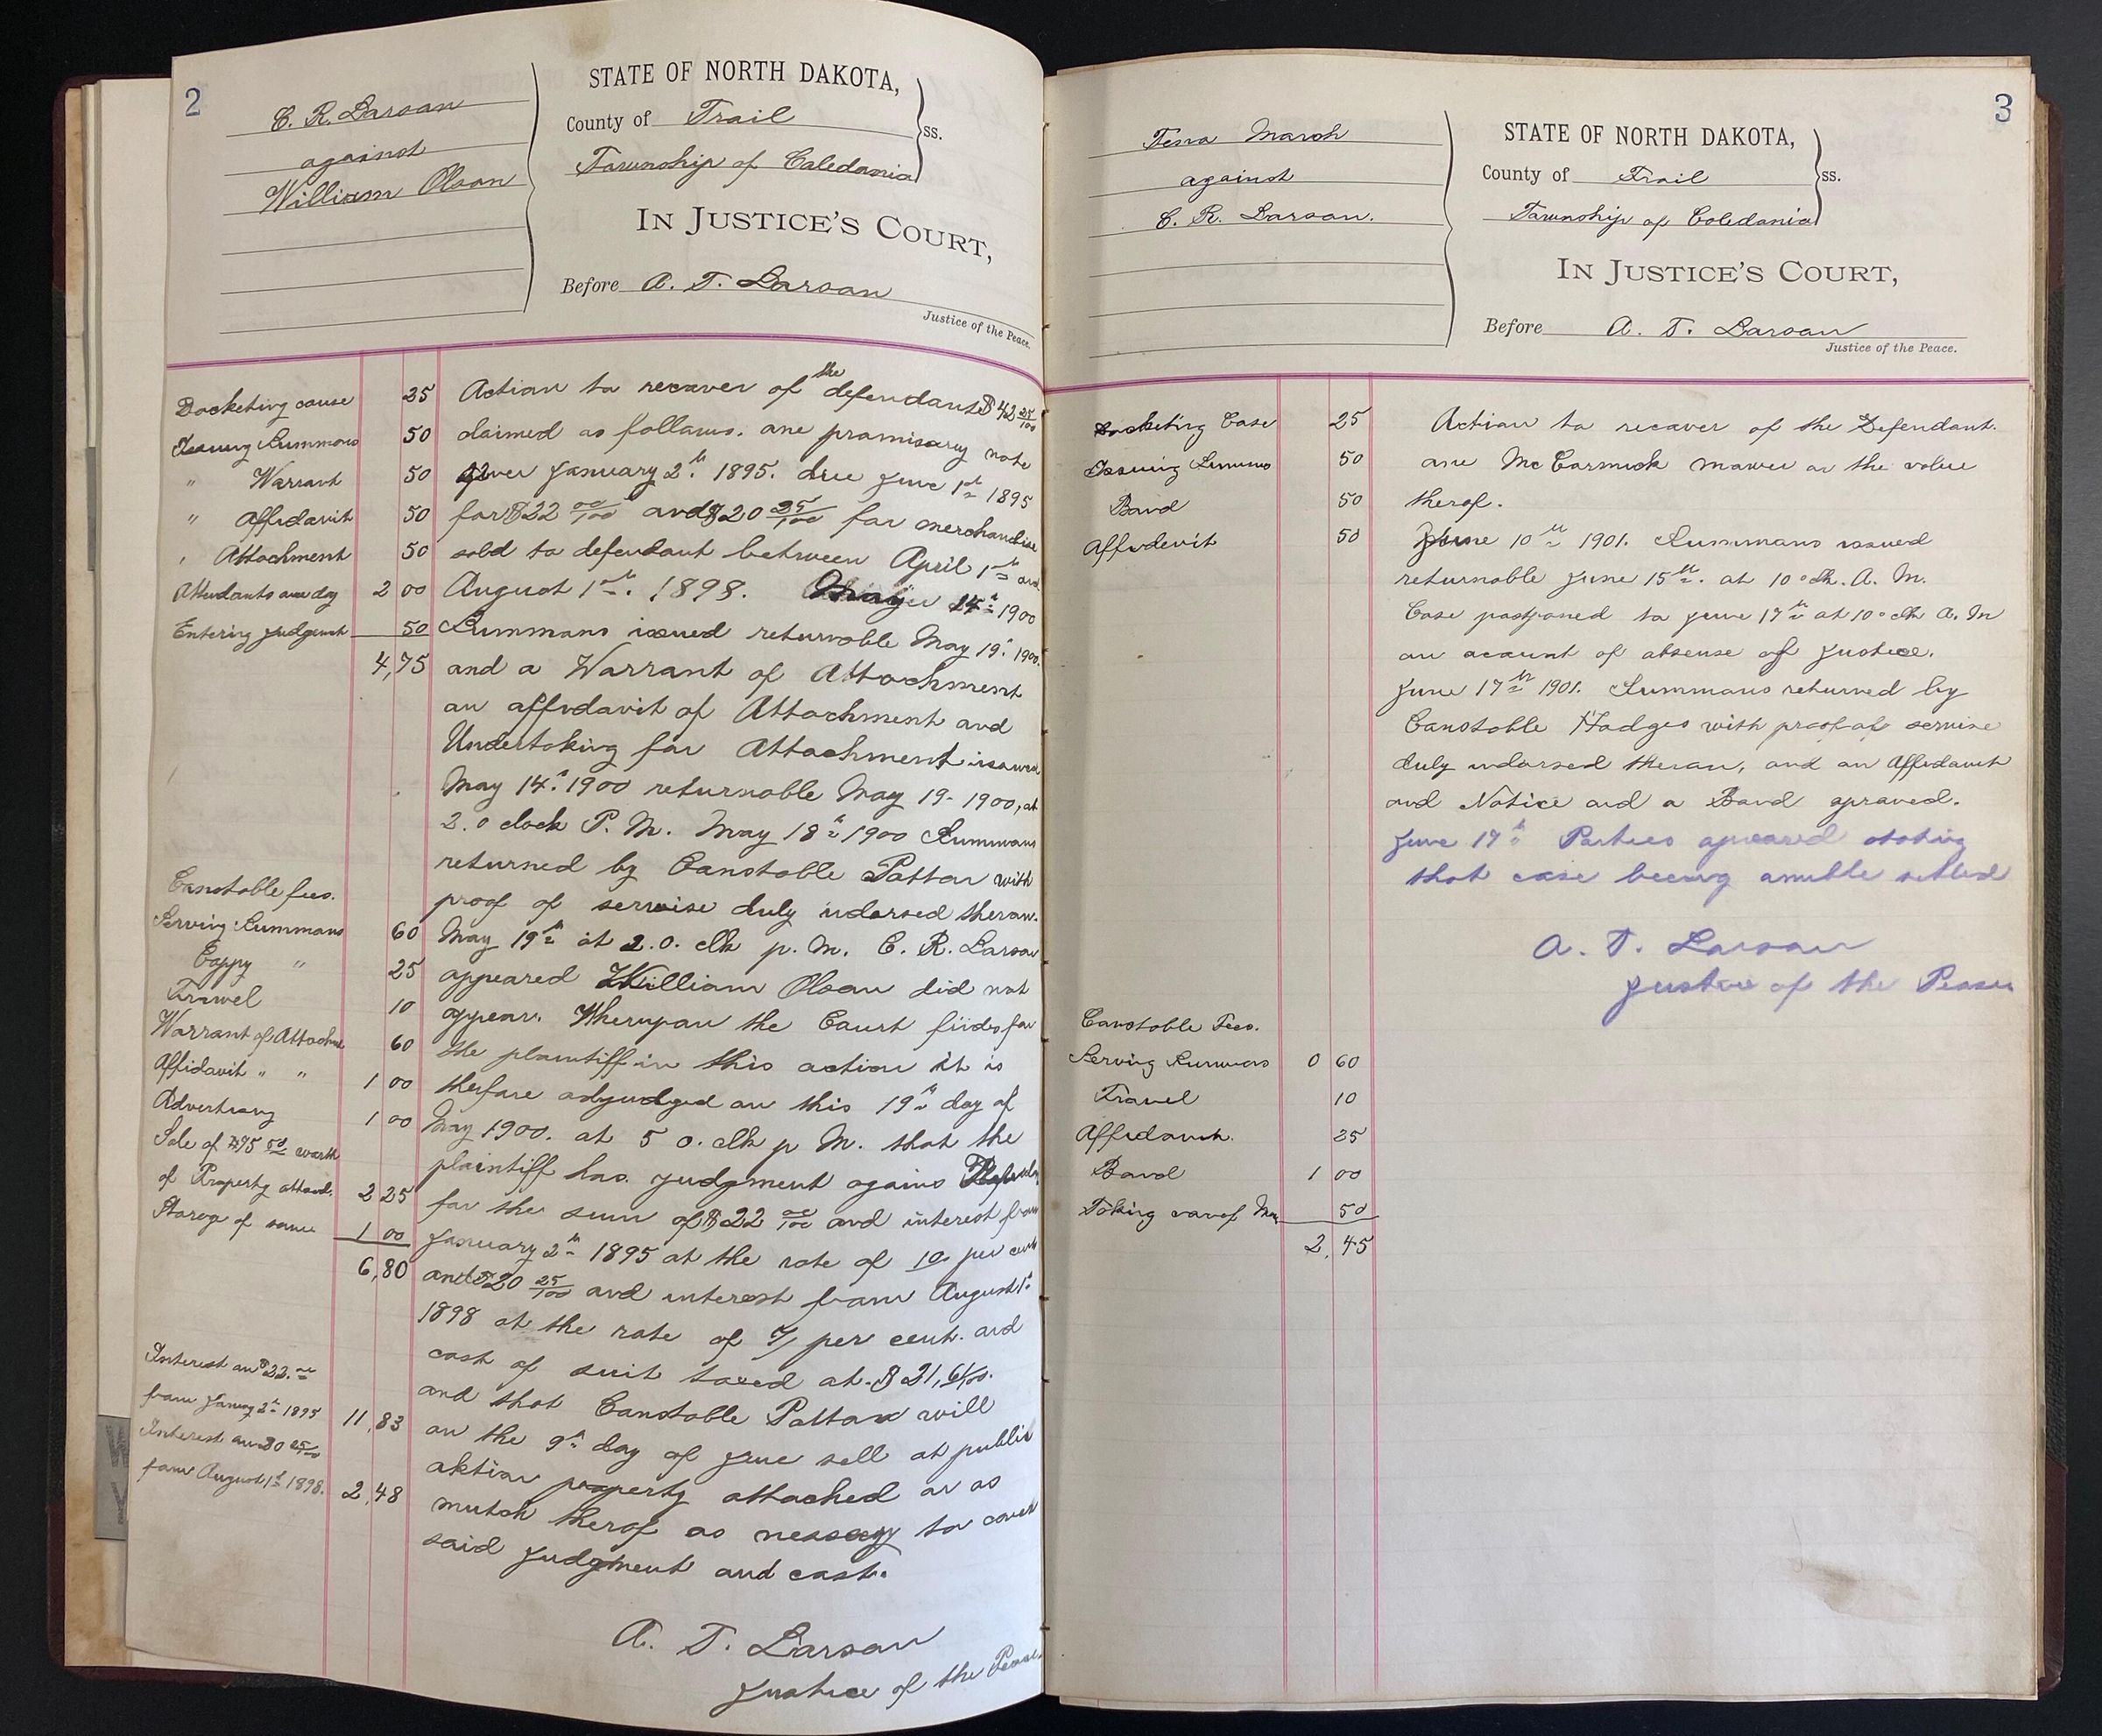 2
C. R. Larson
against
William Olson
STATE OF NORTH DAKOTA,
County of Trail
ss.
Township of Caledonia
IN JUSTICE'S COURT,
Before A. T. Larson
Justice of the Peace.
Docketing cause 25
Issuing Summons 50
" Warrant 50
" Affidavit 50
" Attachment 50
Attendants one day 2 00
Entering Judgment 50
4,75
Constable fees.
Serving Summons 60
Coppy " 25
Trawel 10
Warrant of Attachm 60
Affidavit " " 1 00
Advertising 1 00
Sale of $95 worth
of Property attach. 2 25
Storege of same 1 00
6,80
Interest on $22.00
from January 2d 1895 11,83
Interest on 20 25/100
from August 1st 1898. 2,48
Action to recover of the defendant $42 25/100
claimed as follows. one promisary note
given January 2th. 1895. due June 1st 1895
for $22 00/100 and $20 25/100 for merchandise
sold to defendant between April 1st and
August 1st. 1898. May 14th 1900
Summons issued returnable May 19th 1900.
and a Warrant of Attachment
an affidavit of Attachment and
Undertaking for Attachment issued
May 14th 1900 returnable May 19- 1900, at
2.0 clock P. M. May 18th 1900 Summons
returned by Constable Pattar with
proof of servise duly indorsed theron.
May 19th at 2.0. clk p. M. C. R. Larson
appeared William Olson did not
appear. Wherupon the Court findes for
the plaintiff in this action it is
therfore adjudged on this 19th day of
May 1900. at 5 o. clk p M. that the
plaintiff has judgment agains Defenda
for the sum of $22 00/100 and interest from
January 2th 1895 at the rate of 10 per cent
and $20 25/100 and interest from August 1st
1898 at the rate of 7 per cent. and
cost of suit taxed at $21,61/100.
and that Constable Pattar will
on the 9th day of June sell at public
aktion property attached or as
mutch therof as nessecay to cover
said judgment and cost.
A. T. Larson
Justice of the Pease.
3
Tena Marsh
against
C. R. Larson.
STATE OF NORTH DAKOTA,
County of Trail
ss.
Township of Caledonia
IN JUSTICE'S COURT,
Before A. T. Larson
Justice of the Peace.
Docketing Case 25
Issuing Summo 50
Bond 50
Affidevit 50
Constable Fees.
Serving Summons 0 60
Travel 10
Affidavit. 25
Bond 1 00
Taking care of 50
2,45
Action to recover of the Defendant.
one McCormick mower or the value
therof.
June 10th 1901. Summons issued
returnable June 15th. at 10 o clk. A. M.
Case postponed to June 17th at 10 o clk A. M
on acount of absense of Justice.
June 17th 1901. Summons returned by
Constable Hodges with proof of servise
duly indorsed theron, and an Affidavit
and Notice and a Bond aproved.
June 17th Parties apeared stating
that case beeing amible setled
A. T. Larson
Justice of the Pease